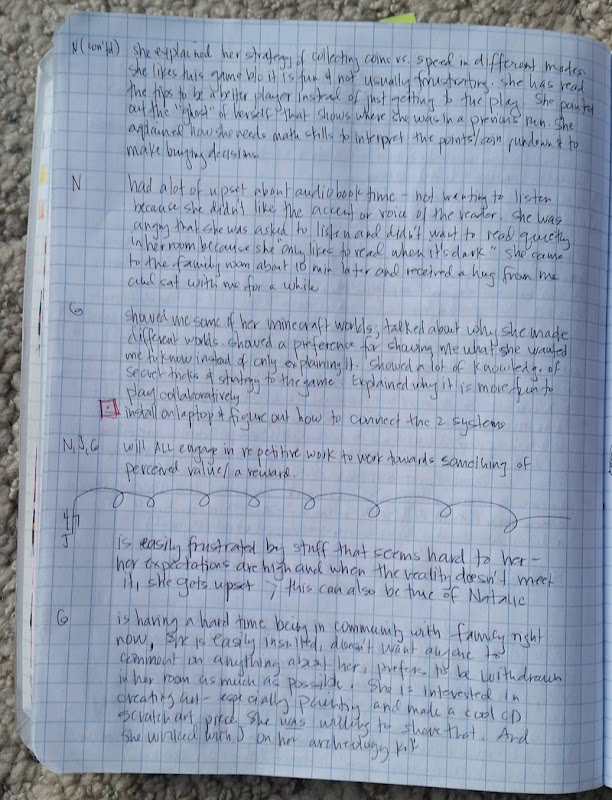 N (con'td) she explained her strategy of collecting coins vs. speed in different modes.
She likes this game b/c it is fun & not usually frustrating. She has read
the tips to be a better player instead of just getting to the play. She pointed
out the "ghost" of herself that shows where she was in a previous run. She
explained how she needs math skills to interpret the points/coin rundown & to
make buying decisions
N had a lot of upset about audiobook time - not wanting to listen
because she didn't like the accent or voice of the reader. She was
angry that she was asked to listen and didn't want to read quietly
in her room because she "only likes to read when it's dark" She came
to the family room about 10 min later and received a hug from me
and sat with me for a while
G showed me some of her minecraft worlds, talked about why she made
different worlds. Showed a preference for showing me what she wanted
me to know instead of only explaining it. Showed a lot of knowledge of
secret tricks & strategy to the game. Explained why it is more fun to
play collaboratively
install on laptop & figure out how to connect the 2 systems
N, J, G will ALL engage in repetitive work to work towards something of
perceived value/a reward.
4/7
J is easily frustrated by stuff that seems hard to her -
her expectations are high and when the reality doesn't meet
it, she gets upset; this can also be true of Natalie
G is having a hard time being in community with family right
now, she is easily insulted, doesn't want anyone to
comment on anything about her, prefers to be withdrawn
in her room as much as possible. She is interested in
creating art - especially painting and made a cool CD
scratch art piece. She was willing to share that. And
she worked with J on her archeology kit